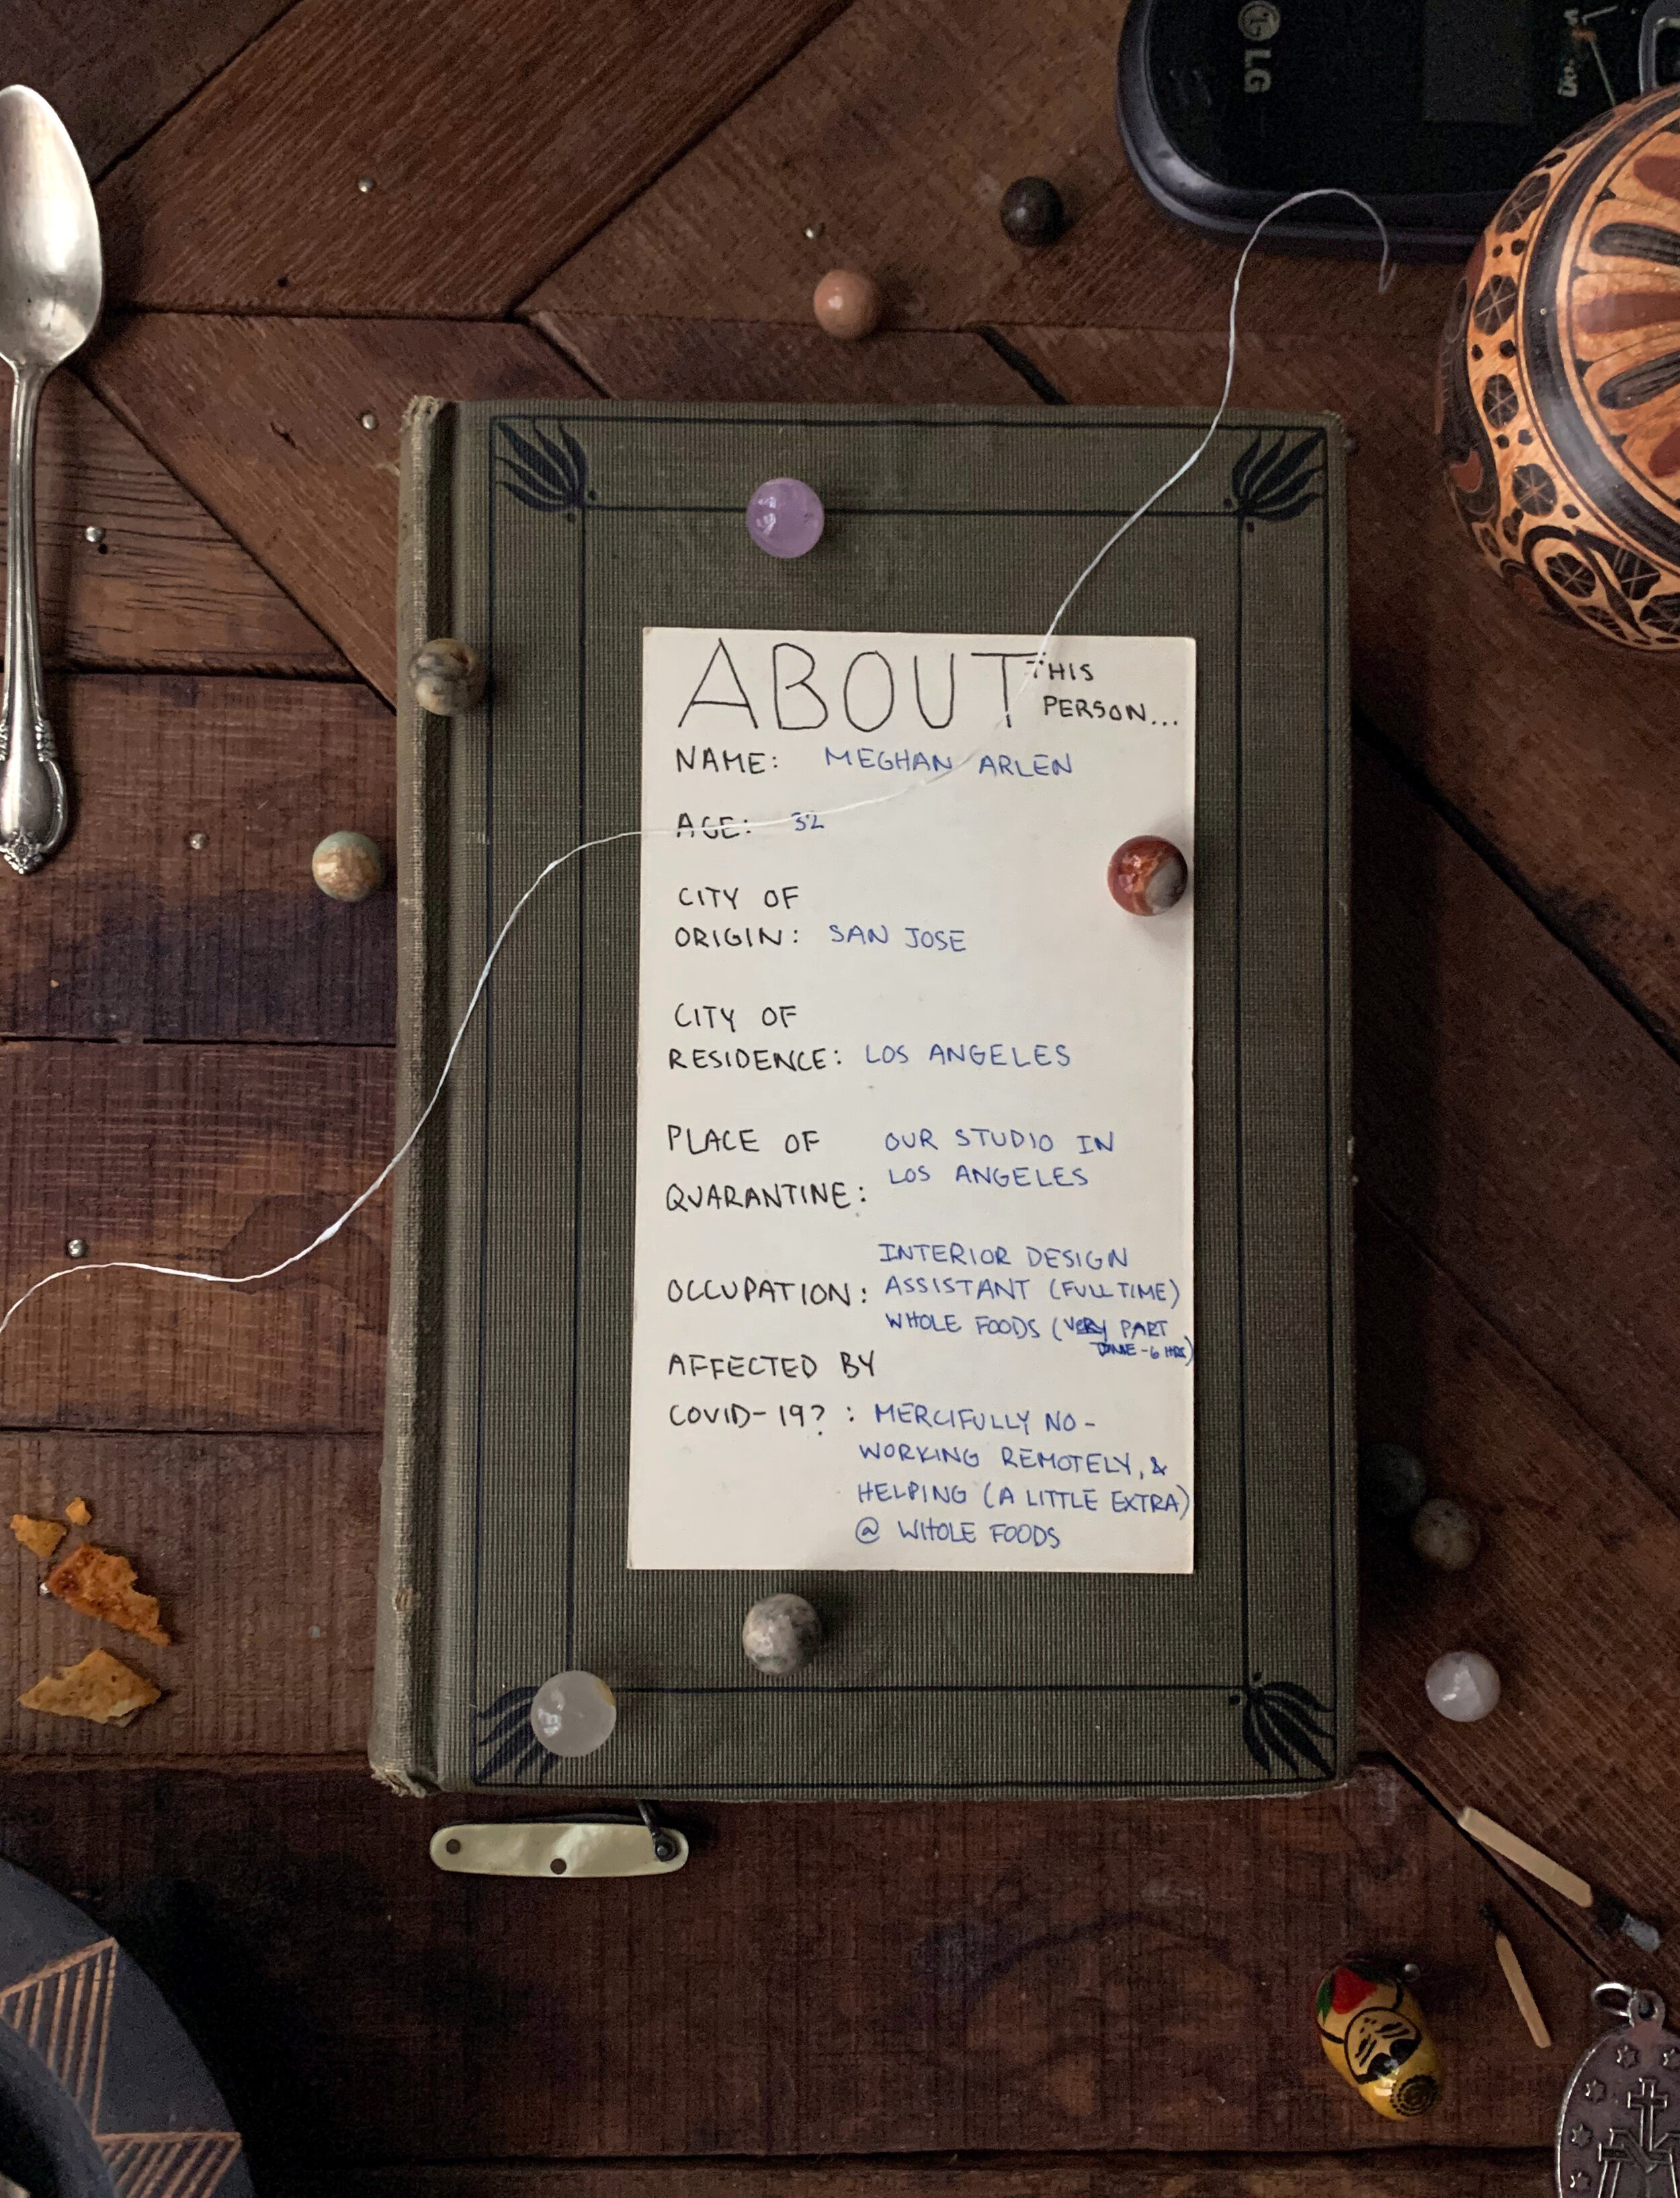 LG
ABOUT THIS
PERSON...
NAME: MEGHAN ARLEN
AGE: 32
CITY OF
ORIGIN: SAN JOSE
CITY OF
RESIDENCE: LOS ANGELES
PLACE OF OUR STUDIO IN
LOS ANGELES
QUARANTINE:
INTERIOR DESIGN
OCCUPATION: ASSISTANT (FULL TIME)
WHOLE FOODS (VERY PART
TIME - 6 HRS)
AFFECTED BY
COVID-19? : MERCIFULLY NO -
WORKING REMOTELY, &
HELPING (A LITTLE EXTRA)
@ WHOLE FOODS